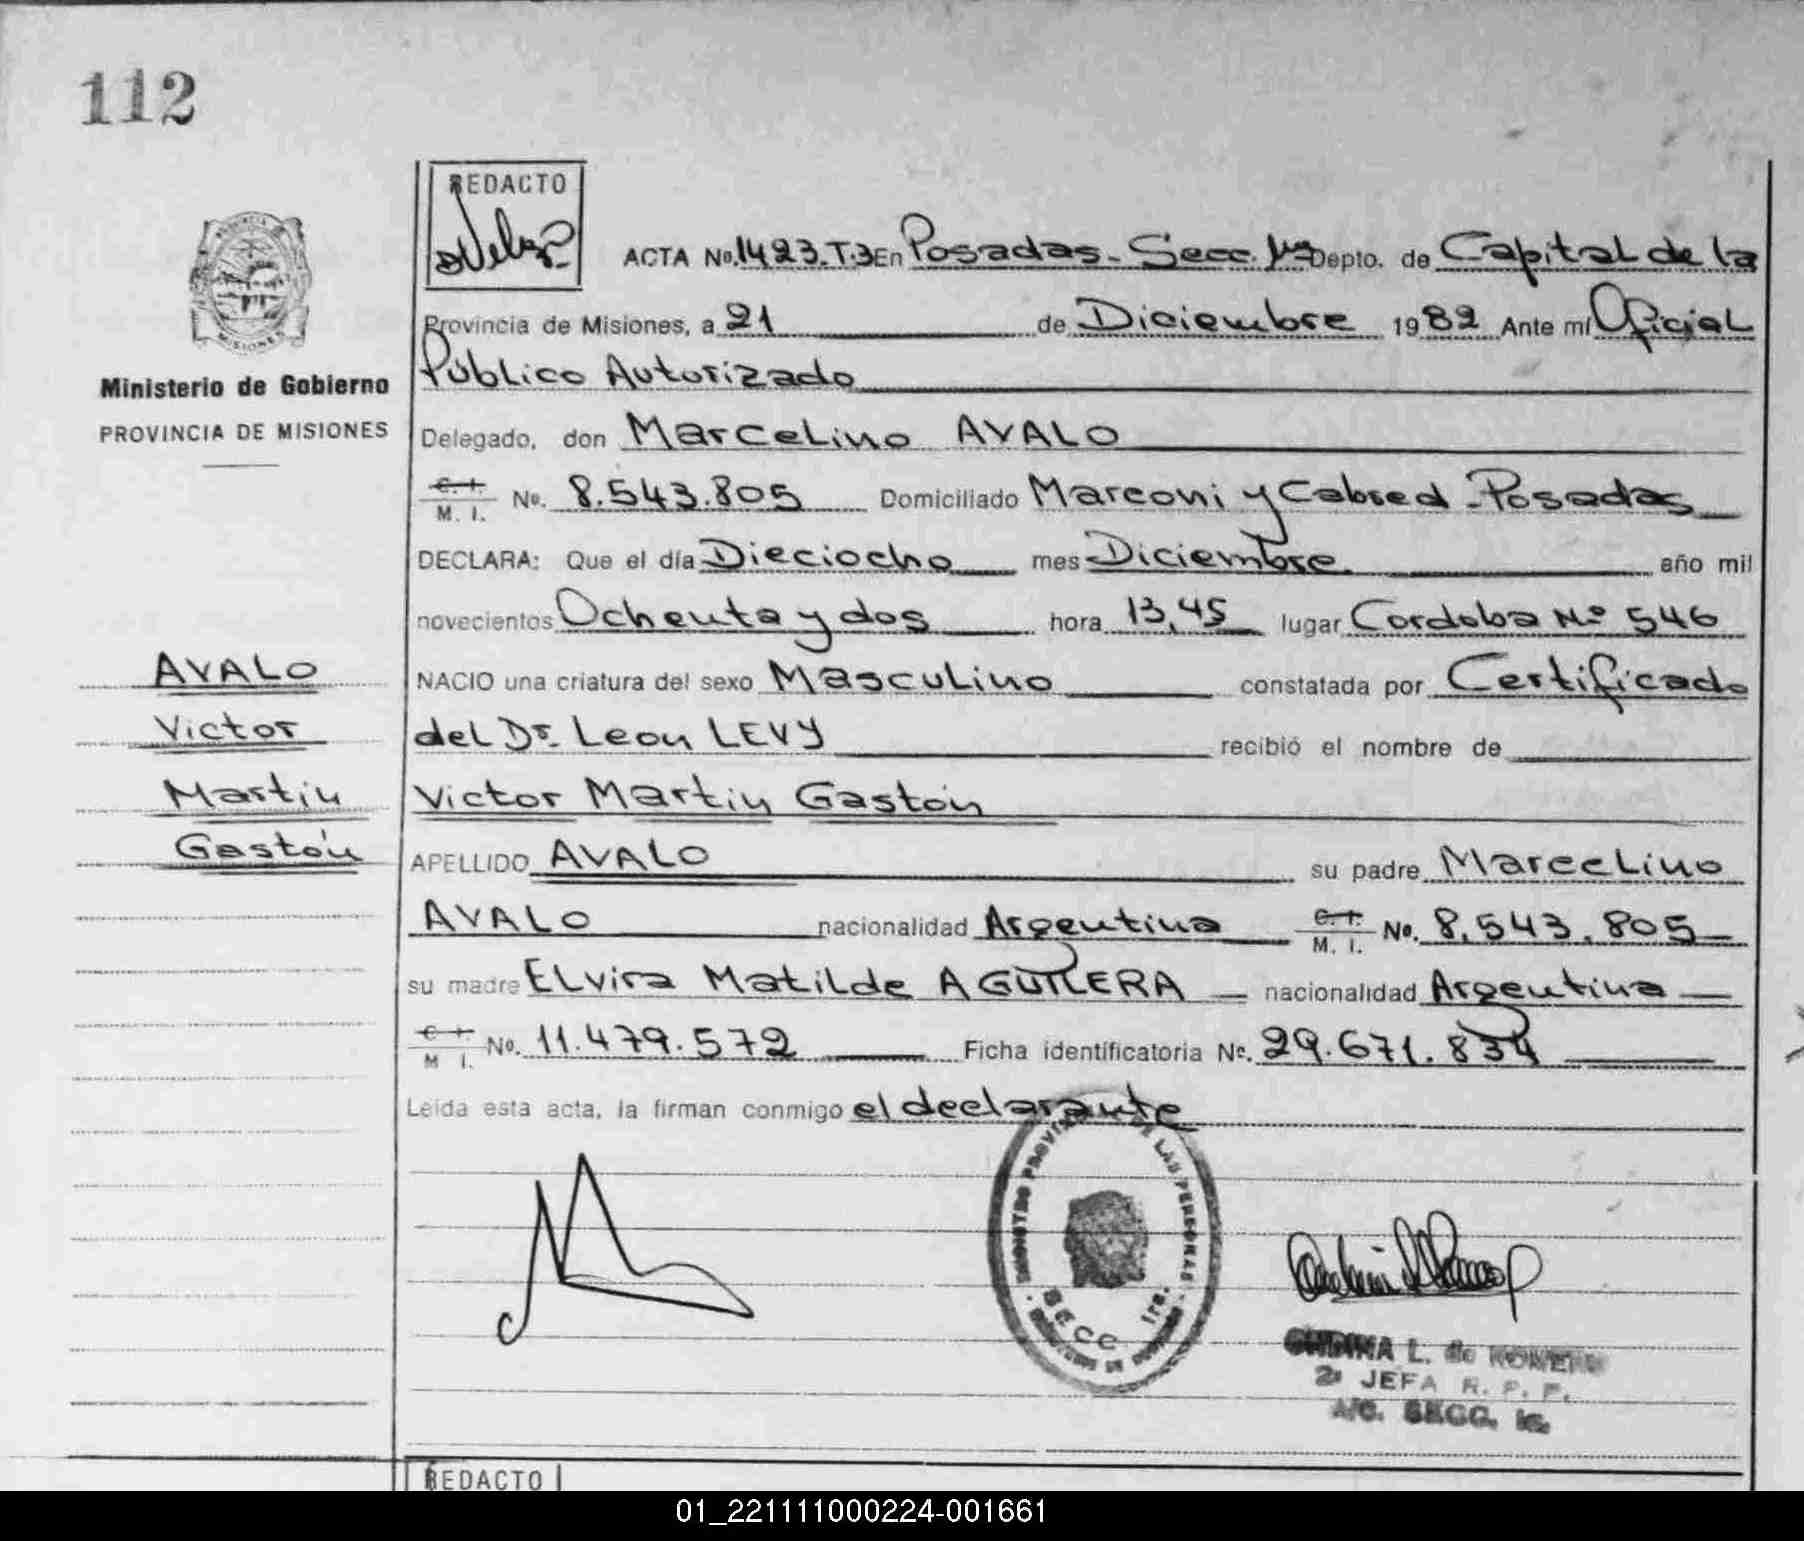 112
REDACTO
PROVINCIA DE
MISIONES
Ministerio de Gobierno
PROVINCIA DE MISIONES
ACTA No. 1423.T.3 En Posadas - Secc. 1ra Depto. de Capital de la
Provincia de Misiones, a 21 de Diciembre 1982 Ante mí Oficial
Público Autorizado
Delegado, don Marcelino AVALO
C. I. / M. I. No. 8.543.805 Domiciliado Marconi y Cabred - Posadas
DECLARA: Que el día Dieciocho mes Diciembre año mil
novecientos Ochenta y dos hora 13,45 lugar Cordoba Nº 546
NACIO una criatura del sexo Masculino constatada por Certificado
del Dr. Leon LEVY recibió el nombre de
Victor Martin Gastón
APELLIDO AVALO su padre Marcelino
AVALO nacionalidad Argentina C. I. / M. I. No. 8.543.805
su madre Elvira Matilde AGUILERA nacionalidad Argentina
C. I. / M. I. No. 11.479.572 Ficha identificatoria No. 29.671.834
Leída esta acta, la firman conmigo el declarante
AVALO
Victor
Martin
Gastón
DE LAS PERSONAS
SECC. 1ra.
L. de ROMERO
2ª JEFA R. P. P.
A/C. SECC. 1ª.
REDACTO
01_221111000224-001661